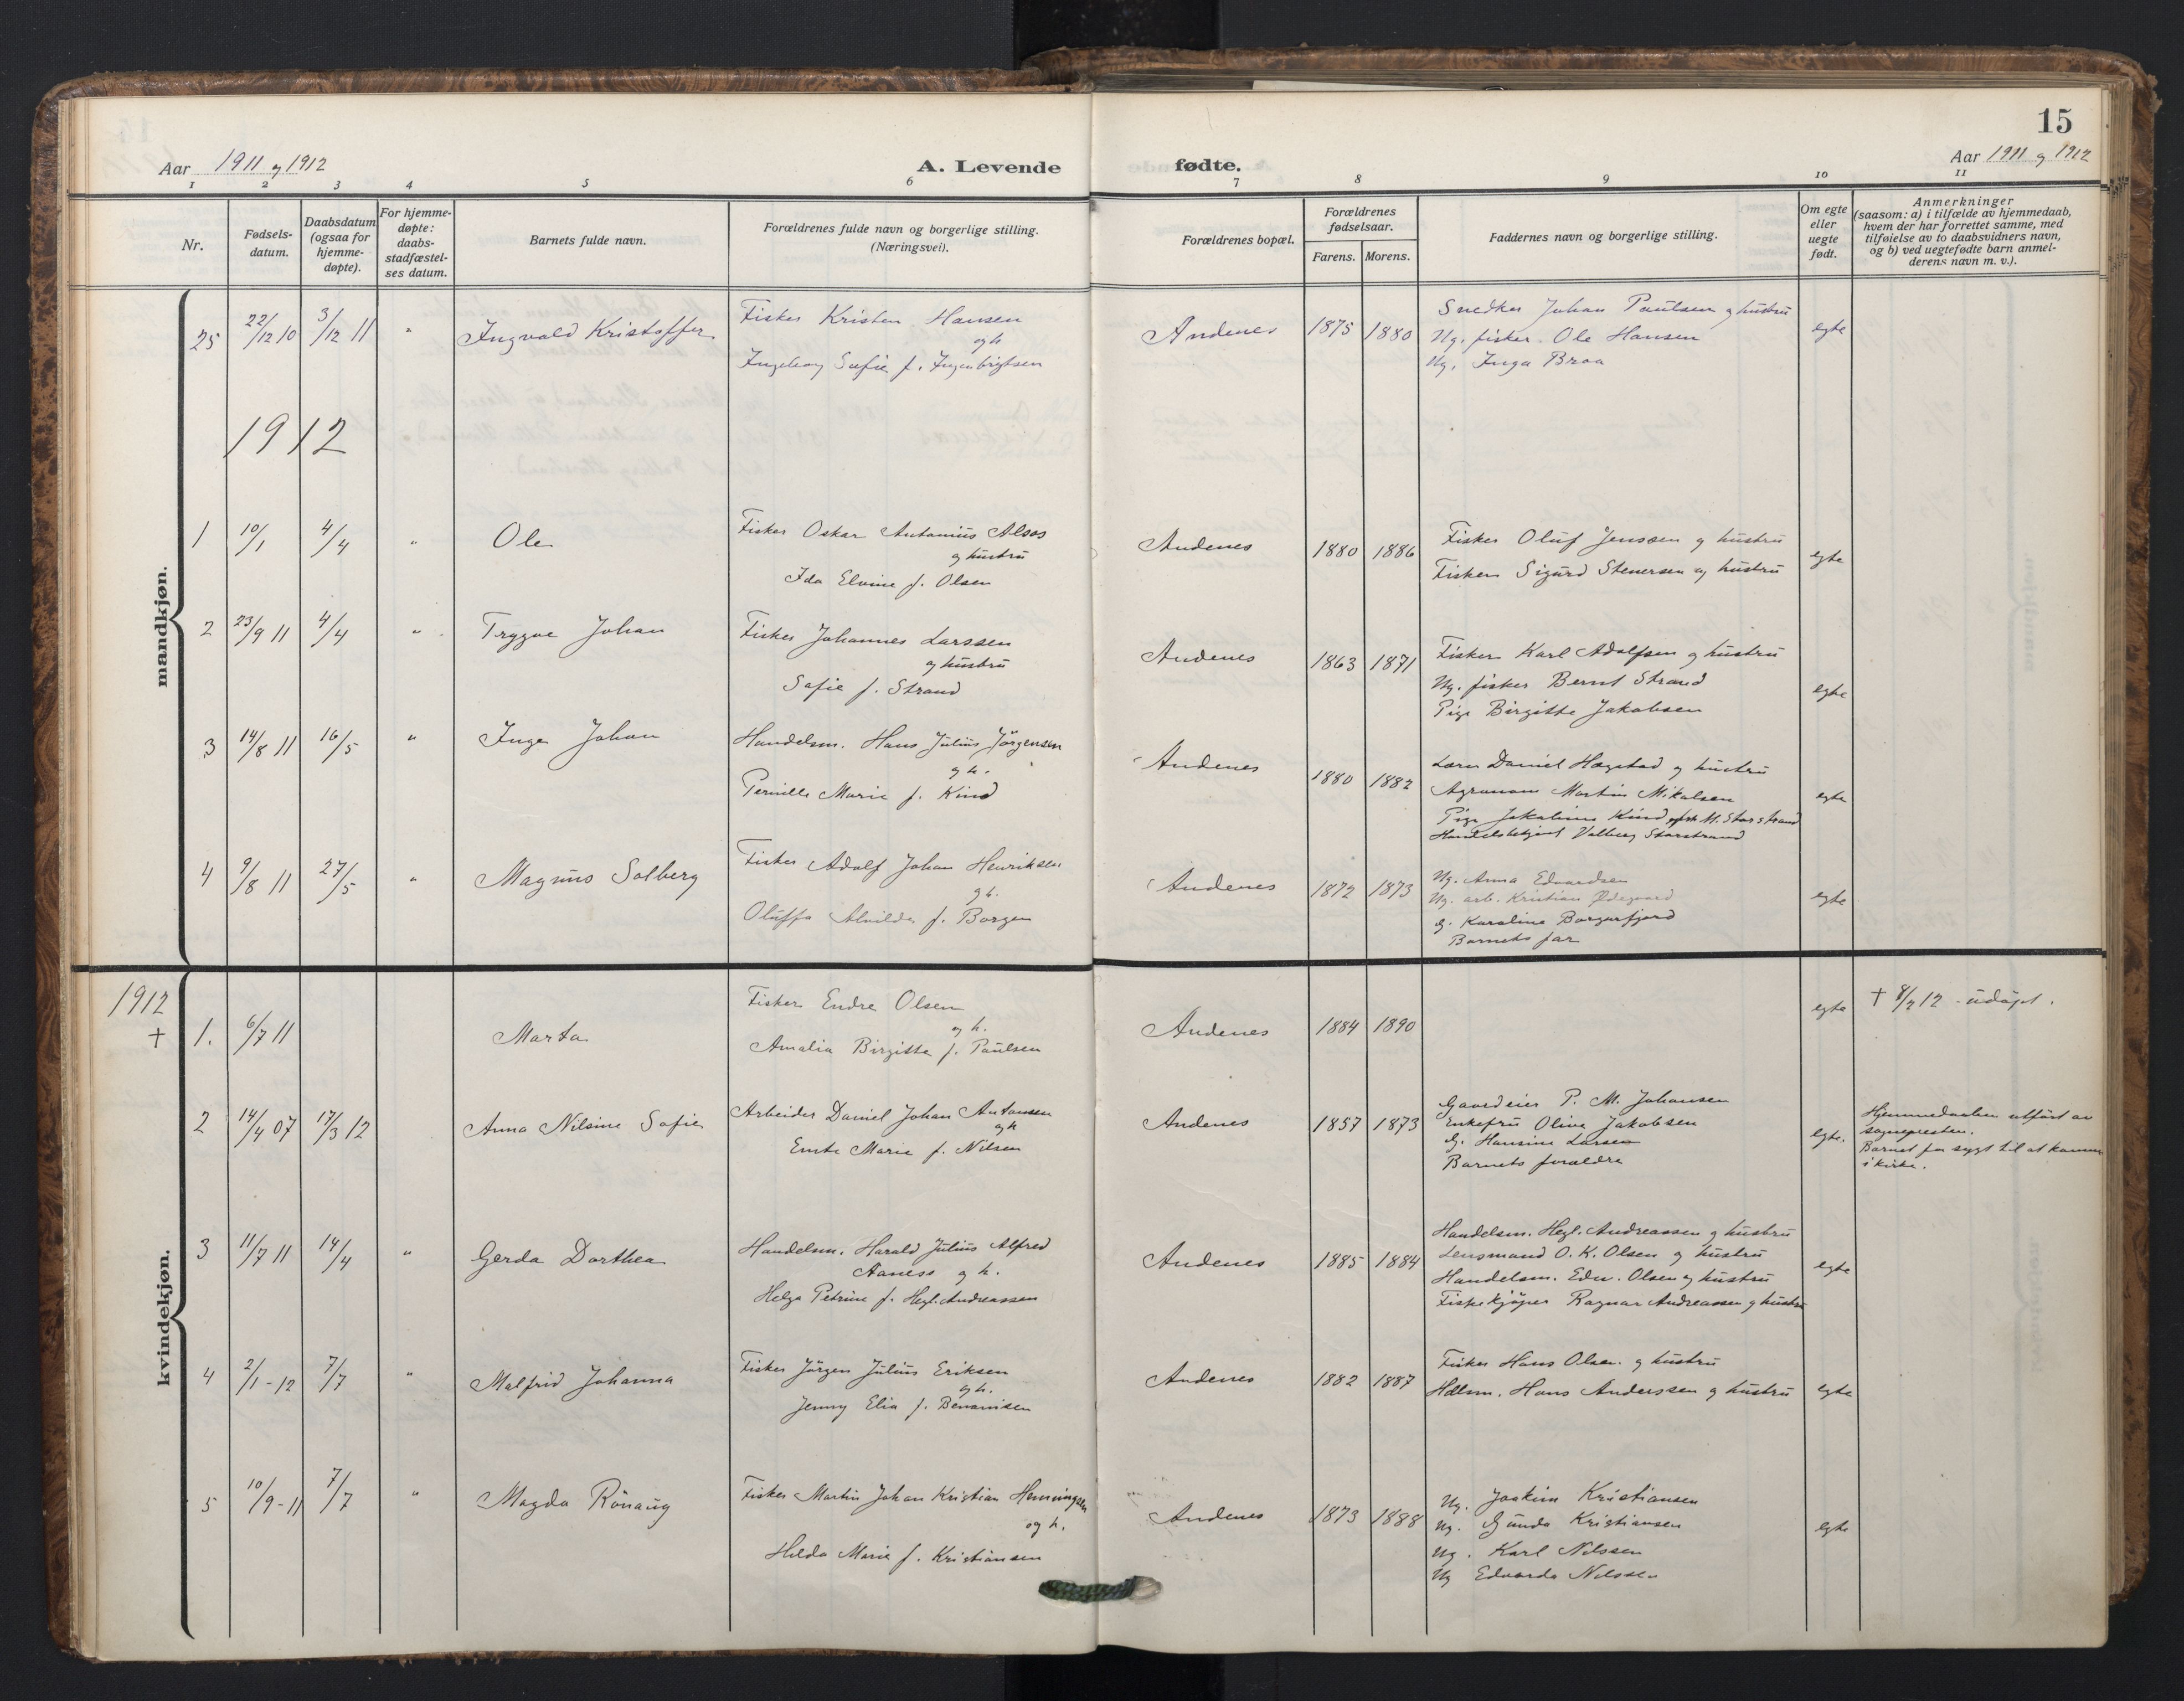 15
Aar 1911 og 1912
A. Levende
fødte.
Aar 1911 og 1912
1 2 3 4 5 6 7 8 9 10 11
Nr.
Fødsels-
datum.
Daabsdatum
(ogsaa for
hjemme-
døpte).
For hjemme-
døpte:
daabs-
stadfæstel-
ses datum.
Barnets fulde navn.
Forældrenes fulde navn og borgerlige stilling.
(Næringsvei).
Forældrenes bopæl.
Forældrenes
fødselsaar.
Farens. Morens.
Faddernes navn og borgerlige stilling.
Om egte
eller
uegte
født.
Anmerkninger
(saasom: a) i tilfælde av hjemmedaab,
hvem der har forrettet samme, med
tilføielse av to daabsvidners navn,
og b) ved uegtefødte barn anmel-
derens navn m. v.).
mandkjøn.
25 22/12 10 3/12 11 " Ingvald Kristoffer
Fisker Kristen Hansen
og h
Ingeborg Sofie f. Ingebrigtsen
Andenes 1875 1880
Snedker Johan Paulsen og hustru
Ug. fisker Ole Hansen
Ug. Inga Braa
egte
1912
1 10/1 4/4 " Ole
Fisker Oskar Antonius Alsos
og hustru
Ida Elvine f. Olsen
Andenes 1880 1886
Fisker Oluf Jenssen og hustru
Fisker Sigurd Stenersen og hustru
egte
2 23/9 11 4/4 " Trygve Johan
Fisker Johannes Larssen
og hustru
Sofie f. Strand
Andenes 1863 1871
Fisker Karl Adolfsen og hustru
Ug. fisker Bernt Strand
Pige Birgitte Jakobsen
egte
3 14/8 11 16/5 " Inge Johan
Handelsm. Hans Julius Jörgensen
og h.
Pernille Marie f. Kind
Andenes 1880 1882
Lærer Daniel Hægstad og hustru
Agronom Martin Mikalsen
Pige Jakobine Kind M. Storstrand
Handelsbetjent Valborg Storstrand
egte
4 9/8 11 27/5 " Magnus Solberg
Fisker Adolf Johan Henriksen
og h.
Oluffa Alvilda f. Borgen
Andenes 1872 1873
Ug. Anna Edvardsen
Ug. arb. Kristian Ødegaard
G. Karoline Borgarfjord
Barnets far
egte
kvindekjøn.
1912
† 1. 6/7 11 Marta
Fisker Endre Olsen
og h.
Amalia Birgitte f. Paulsen
Andenes 1884 1890
egte
† 8/2 12 - udøpt.
2 14/4 07 17/3 12 Anna Nilsine Sofie
Arbeider Daniel Johan Antonsen
og h
Emte Marie f. Nilsen
Andenes 1857 1873
Gaardeier P. M. Johansen
Enkefru Oline Jakobsen
G. Hansine Larsen
Barnets forældre
egte.
Hjemmedaaben utført av
sognepresten.
Barnet for sygt til at komme
i kirke.
3 11/7 11 14/4 " Gerda Dorthea
Handelsm. Harald Julius Alfred
Aaness og h.
Helga Petrine f. Hegl. Andreassen
Andenes 1885 1884
Handelsm. Hegl. Andreassen og hustru
Lensmand O. K. Olsen og hustru
Handelsm. Edv. Olsen og hustru
Fiskekjöper Ragnar Andreassen og hustru
egte
4 2/1 - 12 7/7 " Malfrid Johanna
Fisker Jörgen Julius Eriksen
og h.
Jenny Elia f. Benonisen
Andenes 1882 1887
Fisker Hans Olsen og hustru
Hdlsm. Hans Anderssen og hustru
egte
5 10/9 - 11 7/7 " Magda Rönaug
Fisker Martin Johan Kristian Henningsen
og h.
Hilda Marie f. Kristiansen
Andenes 1873 1888
Ug. Joakim Kristiansen
Ug. Gunda Kristiansen
Ug. Karl Nilssen
Ug Edvarda Nilssen
egte